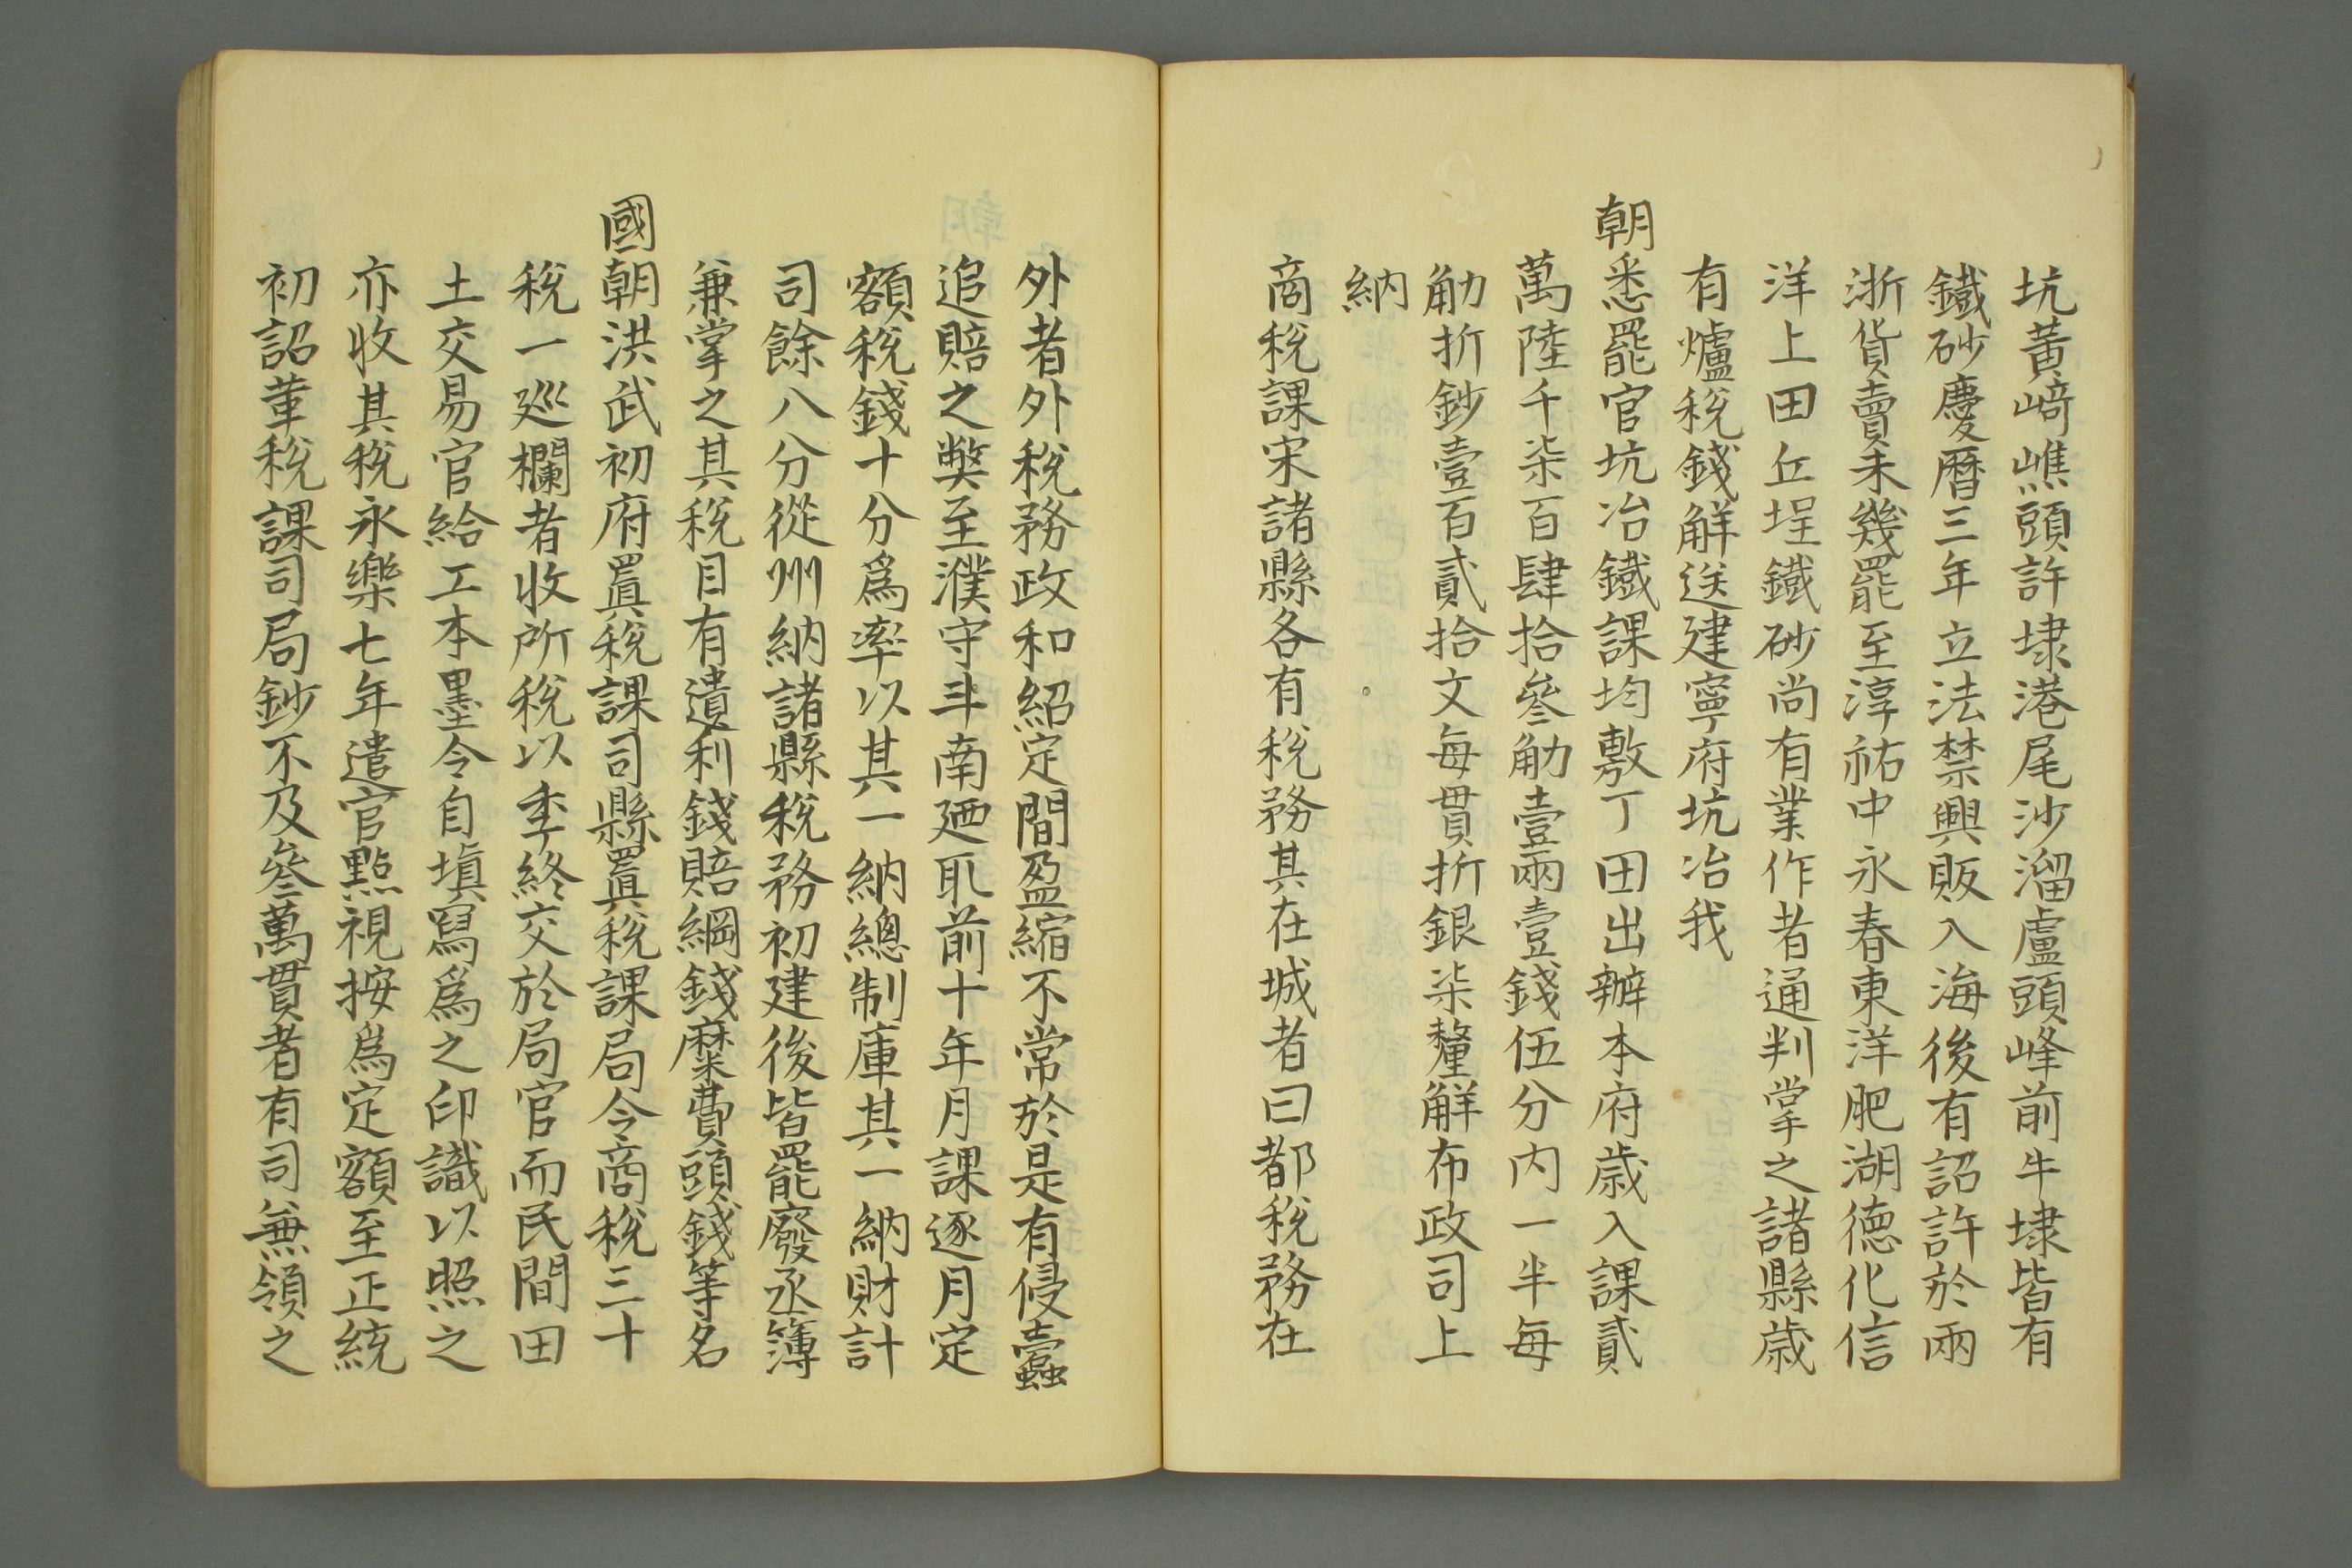 坑黃﨑嶕頭許埭港尾沙溜盧頭峰前牛埭皆有
鐵砂慶曆三年立法禁興販入海後有詔許於兩
浙貨賣未幾罷至淳祐中永春東洋肥湖德化信
洋上田丘埕鐵砂尚有業作者通判掌之諸縣歲
有爐稅錢解送建寧府坑冶我
朝悉罷官坑冶鐵課均敷丁田出辦本府歲入課貳
萬陸千柒百肆拾叄觔壹兩壹錢伍分內一半每
觔折鈔壹百貳拾文每貫折銀柒釐解布政司上
納
商稅課宋諸縣各有稅務其在城者曰都稅務在
外者外稅務政和紹定間盈縮不常於是有侵蠹
追賠之獘至濮守斗南廼取前十年月課逐月定
額稅錢十分爲率以其一納總制庫其一納財計
司餘八分從州納諸縣稅務初建後皆罷廢丞簿
兼掌之其稅目有遺利錢賠綱錢糜費頭錢等名
國朝洪武初府置稅課司縣置稅課局令商稅三十
稅一巡欄者收所稅以季終交於局官而民間田
土交易官給工本墨令自塡寫爲之印識以照之
亦收其稅永樂七年遣官點視按爲定額至正統
初詔革稅課司局鈔不及叄萬貫者有司兼領之